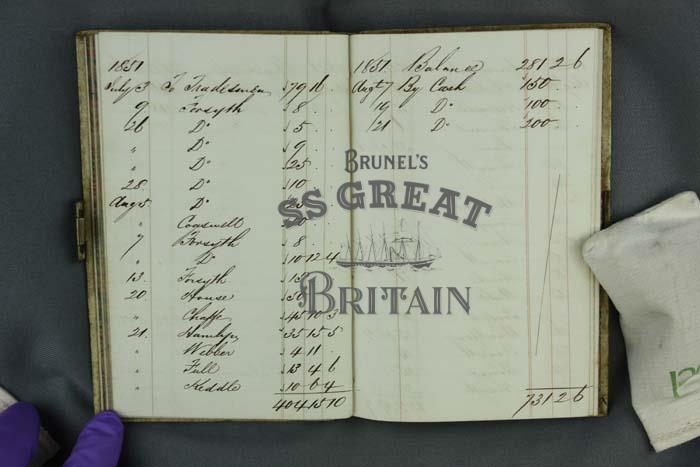 1851
July 3 To Tradesmen 79 16 .
9 Forsyth 8 . .
26 Do 5 . .
" Do 9 . .
" Do 25 . .
28 Do 10 . .
Augt 5 Do 25
"
7 Forsyth 8 .
" Do 10 12 4
13. Forsyth 15
20. House 50
" Chaffe 45 10 3
21. Hamlyn 35 15 5
" Webber 4 11 .
" Full 13 4 6
" Keddle 10 6 4
404 15 10
1851 Balance 281 2 6
Augt 7 By Cash 150 . .
19 Do 100 . .
21 Do 200 . .
731 2 6
BRUNEL'S
SS GREAT
BRITAIN